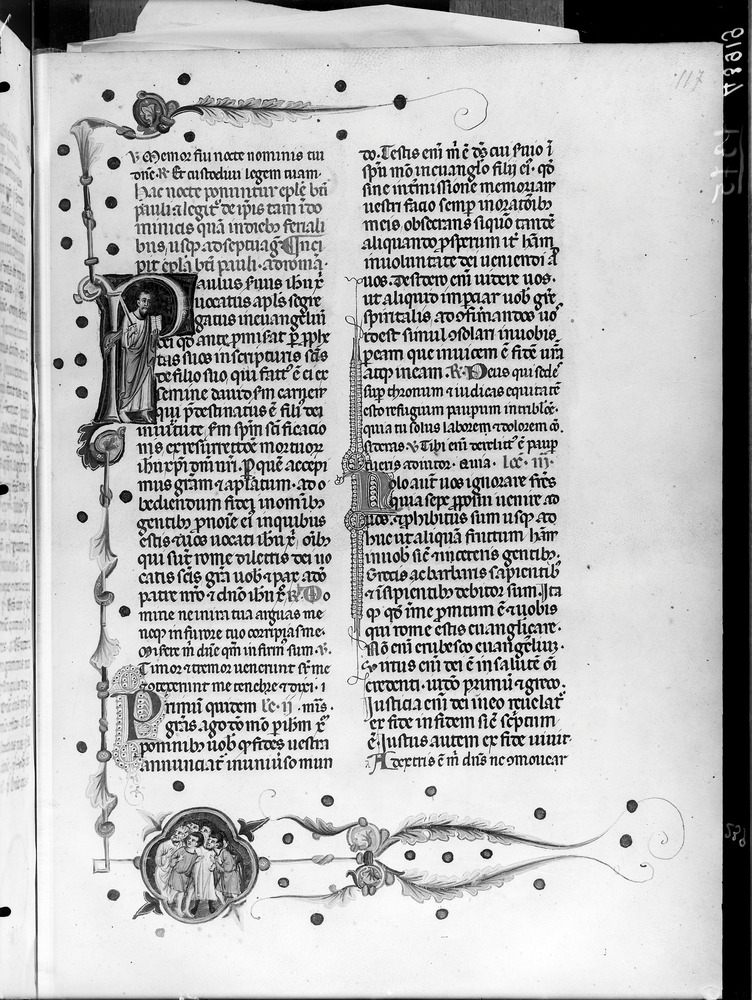 117
℣ Memor fui nocte nominis tui
dñe ℟ Et custodiui legem tuam.
hac nocte ponuntur eplẽ bti
pauli ⁊ legit͛ de ip̃is tam ĩ do
minicis quã in dieb͛ feriali
bus, usq͛ ad septuag̃ Inci
pit ep̃la bt̃i pauli. ad roma.
Paulus seruus ihũ xp̃
uocatus ap̃ls segre
gatus in euangeliũ
dei qđ ante p̃misat p̱ p̃phe
tas suos in scripturis sc̃is
de filio suo, qui fact͛ ẽ ei ex
semine dauid sm̃ carnem
qui p̃destinatus ẽ fili͛ dei
in uirtute sm̃ sp̃m sc̃ificatio
nis ex resurrectõe mortuoꝝ
ihũ xp̃i dñi nr̃i. P̱ quẽ accepi
mus gr̃am ⁊ ap̃latum. ad o
bediendum fidei in omib͛
gentib͛ p̱ noĩe ei͛ in quibus
estis ⁊ uos uocati ihũ xp̃. oĩb͛
qui sũt rome dilectis dei uo
catis sc̃is. gr̃a uob̃ ⁊ pax a dõ
patre nr̃o ⁊ dño ihũ xp̃ ℟ Do
mine ne in ira tua arguas me
neq͛ in furore tuo corripias me.
Miserẽ m̃ dñe qm̃ infirm͛ sum. ℣
Timor ⁊ tremor uenerunt sr̃ me
⁊ cõtexerunt me tenebre ⁊ dixi. i
Primũ quidem lc̃. ii. m̃s.
gr̃as. ago dõ mõ p̱ ihm̃ xp̃
p̱ omnib͛ uob̃ q̃ fides uestra
annunciat͛ in uniuso mun
do. Testis eni m̃ ẽ dš cui seruio ĩ
sp̃u mõ in euang̃lo filii ei͛. qđ
sine int̃missione memoriam
uestri facio semp̱ in or̃atoib͛
meis obsecrans si quo tandẽ
aliquando p̱sperum it͛ ham̃
in uoluntate dei ueniendi ad
uos. Desid̃o eni uidere uos.
ut aliquid imp̱ciar uob̃ gr̃e
spiritalis ad ꝯfirmandos uo͛
id est simul ꝯsolari in uobis.
p̱ eam que inuicem ẽ fidẽ ur̃am
atq͛ meam. ℟ Deus qui sedes
sup̱ thronum ⁊ iudicas equitatẽ
esto refugium paup̱um in tribl̃ocẽ.
quia tu solus laborem ⁊ dolorem cõ
sideras. ℣ Tibi eni derelict͛ ẽ paup̱
lc̃. iii.
Nolo aut̃ uos ignorare fr̃es
quia sepe p̱posui uenire ad
uos. ⁊ p̱hibitus sum usq͛ ad
huc ut aliquẽ fructum ham̃
in uob̃ sic̃ ⁊ in ceteris gentib͛.
Grecis ac barbaris sapientib͛
⁊ ĩsipientib͛ debitor sum. Ita
q̱ qđ ĩ me p̱mtum ẽ ⁊ uobis
qui rome estis euangliçare.
Nõ eni erubesco euangeliuz.
Virtus eni dei ẽ in salutẽ oĩ
credenti. iudeo primũ ⁊ greco.
Iusticia eni dei in eo reuelat͛
ex fide in fidem sic̃ sc̃ptum
ẽ. Iustus autem ex fide uiuit
A dextris ẽ m̃ dñs ne cõmouear